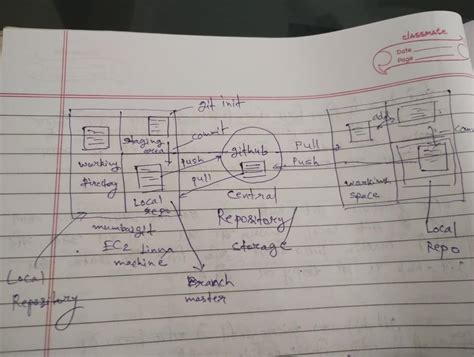 classmate
Date
Page
git init
staging
area
commit
add
github
Pull
Push
push
pull
working
directory
Local
repo
Central
Repository
storage
working
space
Local
Repo
mumbai
EC2
machine
Local
Repository
Branch
master